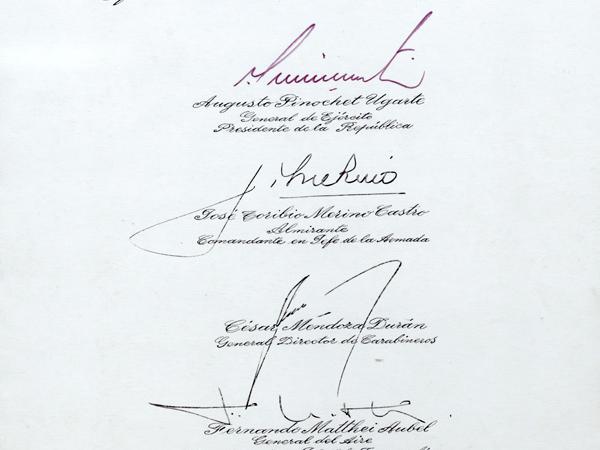 Augusto Pinochet Ugarte
General de Ejército
Presidente de la República
José Toribio Merino Castro
Almirante
Comandante en Jefe de la Armada
César Mendoza Durán
General Director de Carabineros
Fernando Matthei Aubel
General del Aire